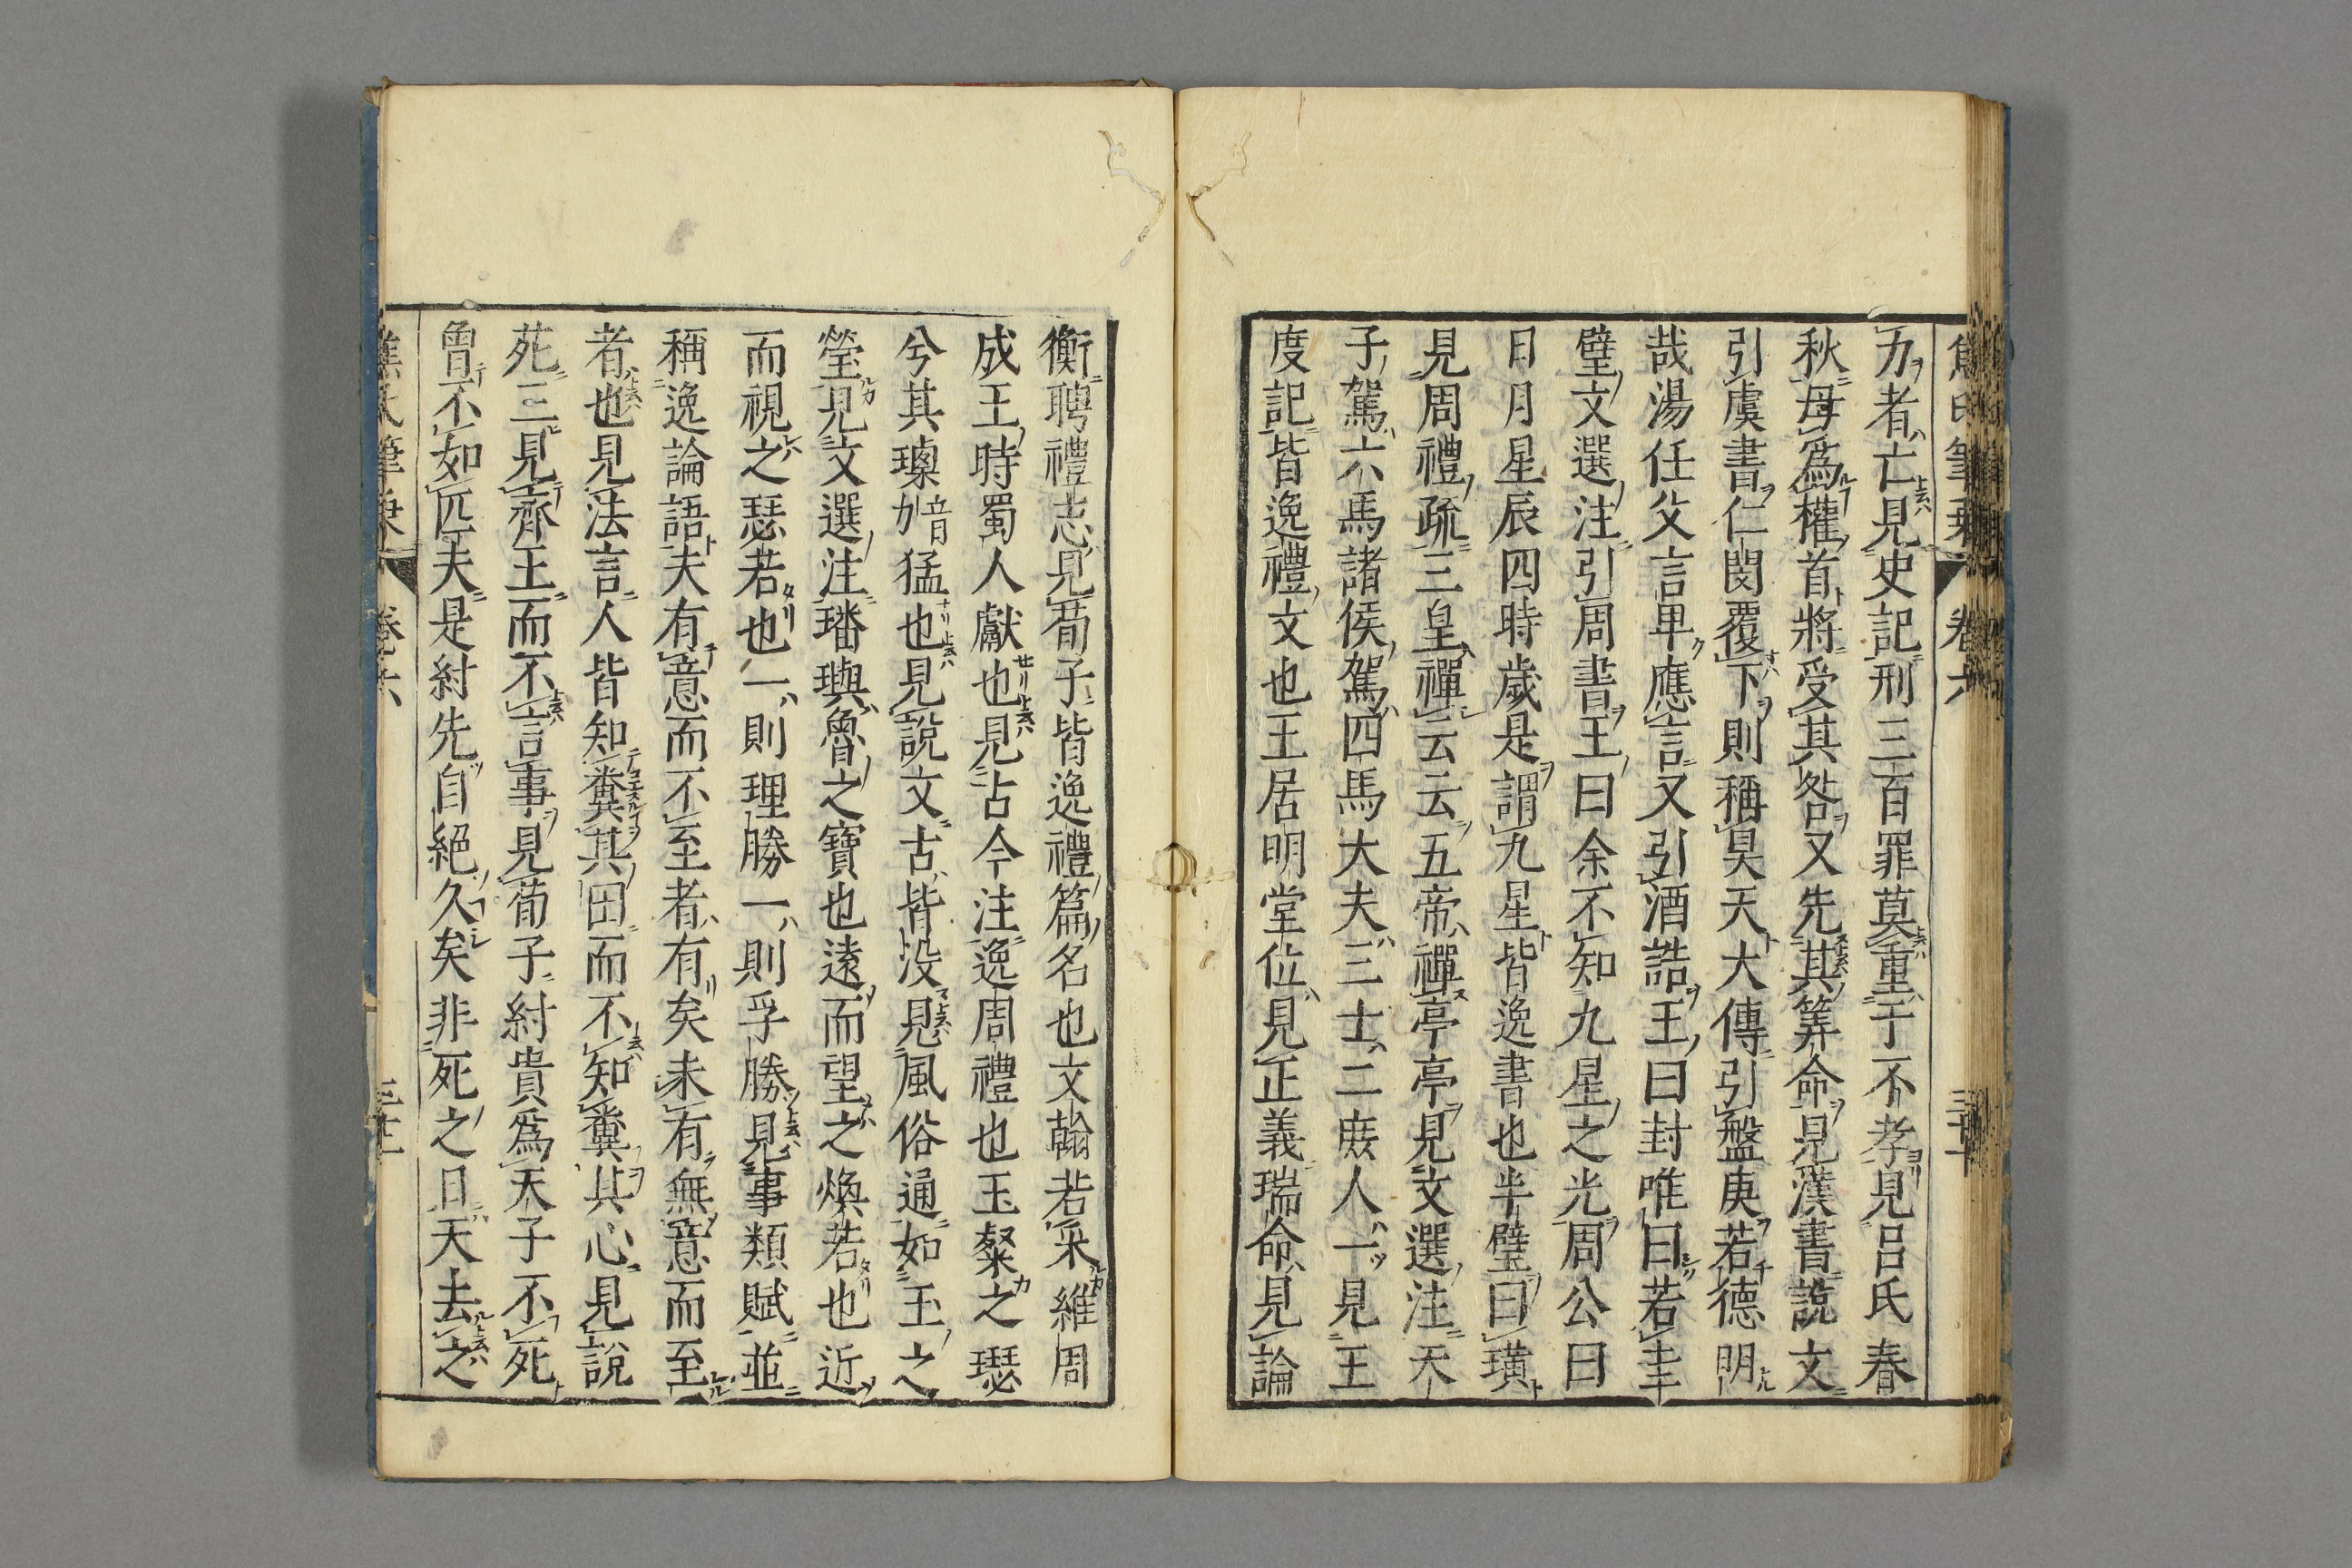 力者亡見史記刑三百罪莫重于不孝見吕氏春
秋毋爲權首將受其咎又先其筭命見漢書說文
引虞書仁閔覆下則稱昊天大傳引盤庚若德明
哉湯任父言卑應言又引酒誥王曰封唯曰若圭
璧文選注引周書王曰余不知九星之光周公曰
日月星辰四時歲是謂九星皆逸書也半璧曰璜
見周禮疏三皇禪云云五帝禪亭亭見文選注天
子駕六馬諸侯駕四馬大夫三士二庻人一見王
度記皆逸禮文也王居明堂位見正義瑞命見論
衡聘禮志見荀子皆逸禮篇名也文翰若采維周
成王時蜀人獻也見占今注逸周禮也玉粲之璱
兮其瓅音加猛也見說文古皆没見風俗通如玉之
瑩見文選注璠璵魯之寶也遠而望之煥若也近
而視之瑟若也一則理勝一則孚勝見事類賦並
稱逸論語夫有意而不至者有矣未有無意而至
者也見法言人皆知糞其田而不知糞其心見說
苑三見齊王而不言事見荀子紂貴爲天子不死
曾不如匹夫是紂先自絕久矣非死之日天去之